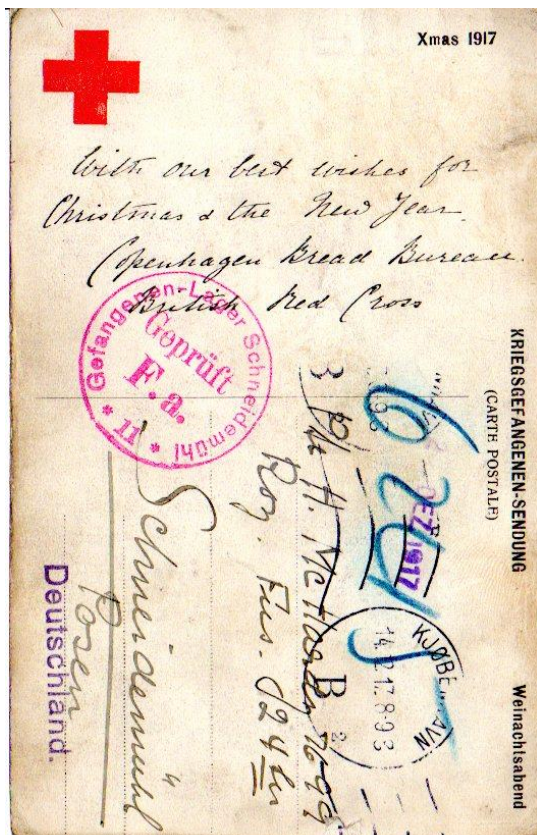 Xmas 1917
With our best wishes for
Christmas & the New Year.
Copenhagen Bread Bureau.
British Red Cross
Gefangenen-Lager Schneidemühl
Geprüft
F.a.
* 11 *
KRIEGSGEFANGENEN-SENDUNG
(CARTE POSTALE)
Weinachtsabend
DEZ 1917
KJØBENHAVN
B
Pte H.
Roy. Fus. 24th
Schneidemühl
Posen
Deutschland.